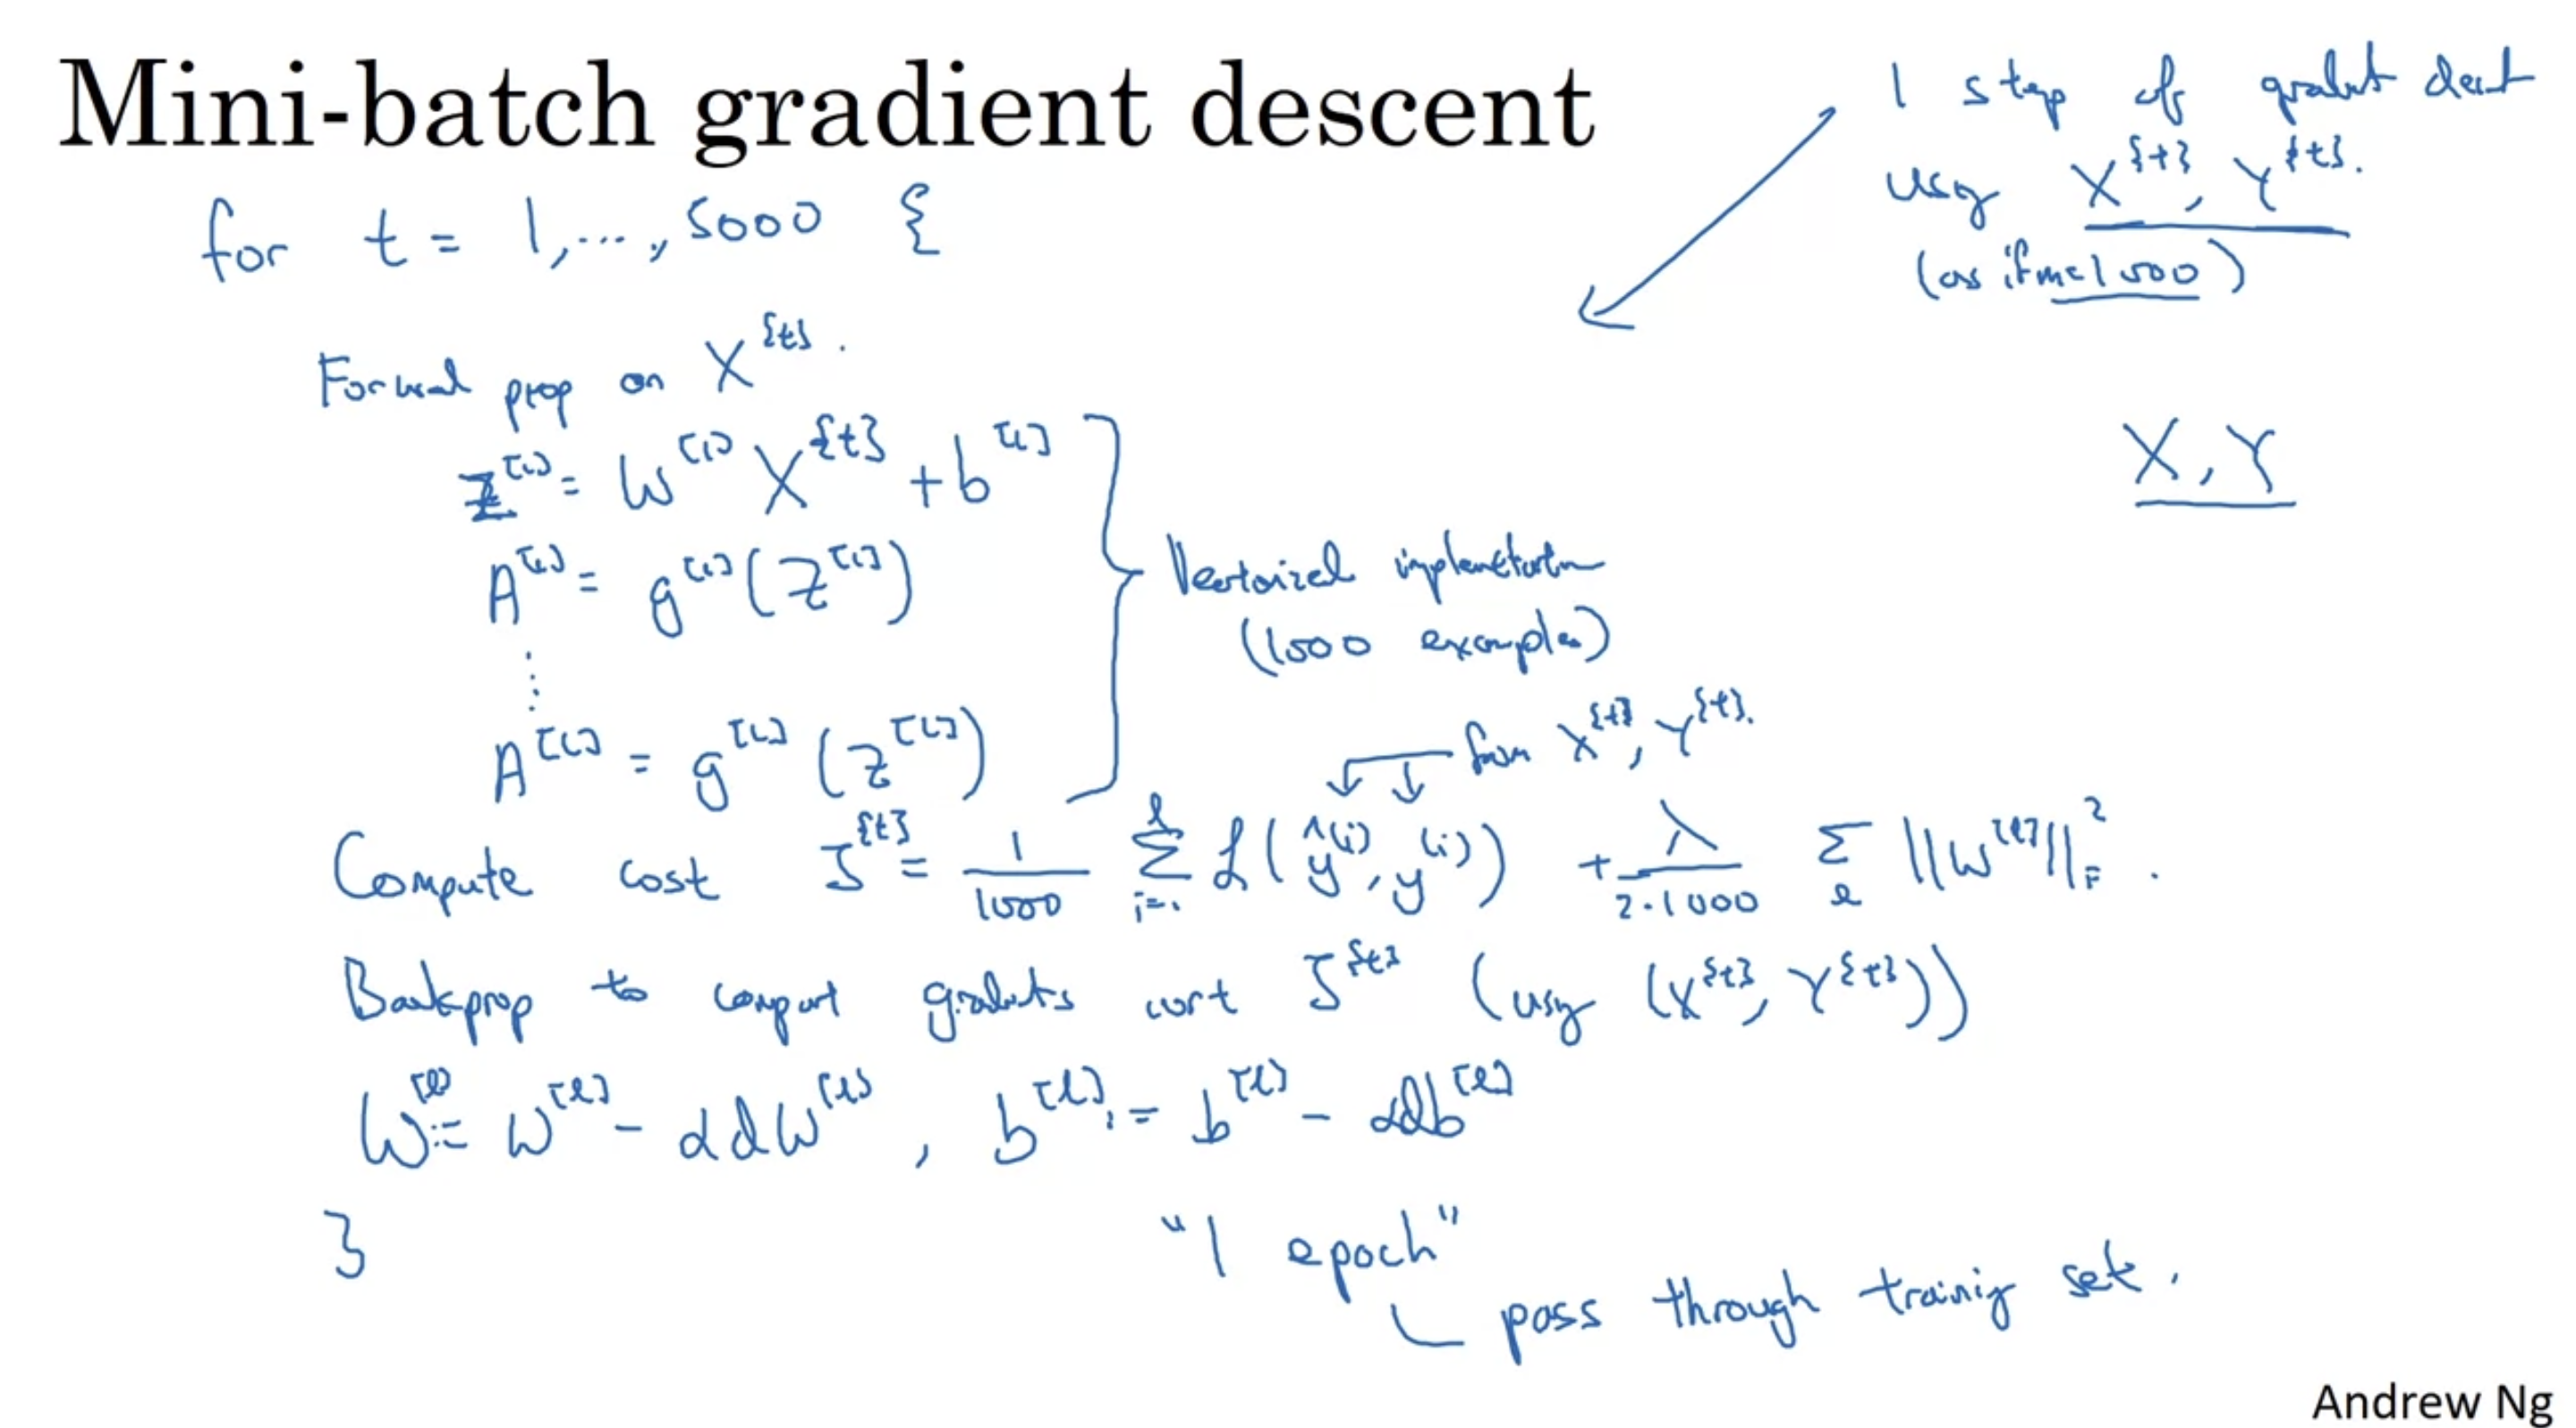 Mini-batch gradient descent
1 step of gradient descent
using X^{t}, Y^{t}.
(as if m=1000)
for t = 1,...,5000 {
Forward prop on X^{t}.
Z^[1] = W^[1] X^{t} + b^[1]
A^[1] = g^[1](Z^[1])
⋮
A^[L] = g^[L](Z^[L])
Vectorized implementation
(1000 examples)
X, Y
from X^{t}, Y^{t}.
Compute cost J^{t} = 1/1000 Σ_{i=1}^{l} L(ŷ^(i), y^(i)) + λ/(2·1000) Σ_l ||W^[l]||_F^2.
Backprop to compute gradients wrt J^{t} (using (X^{t}, Y^{t}))
W^[l] := W^[l] - αdW^[l], b^[l] := b^[l] - αdb^[l]
}
"1 epoch"
pass through training set.
Andrew Ng